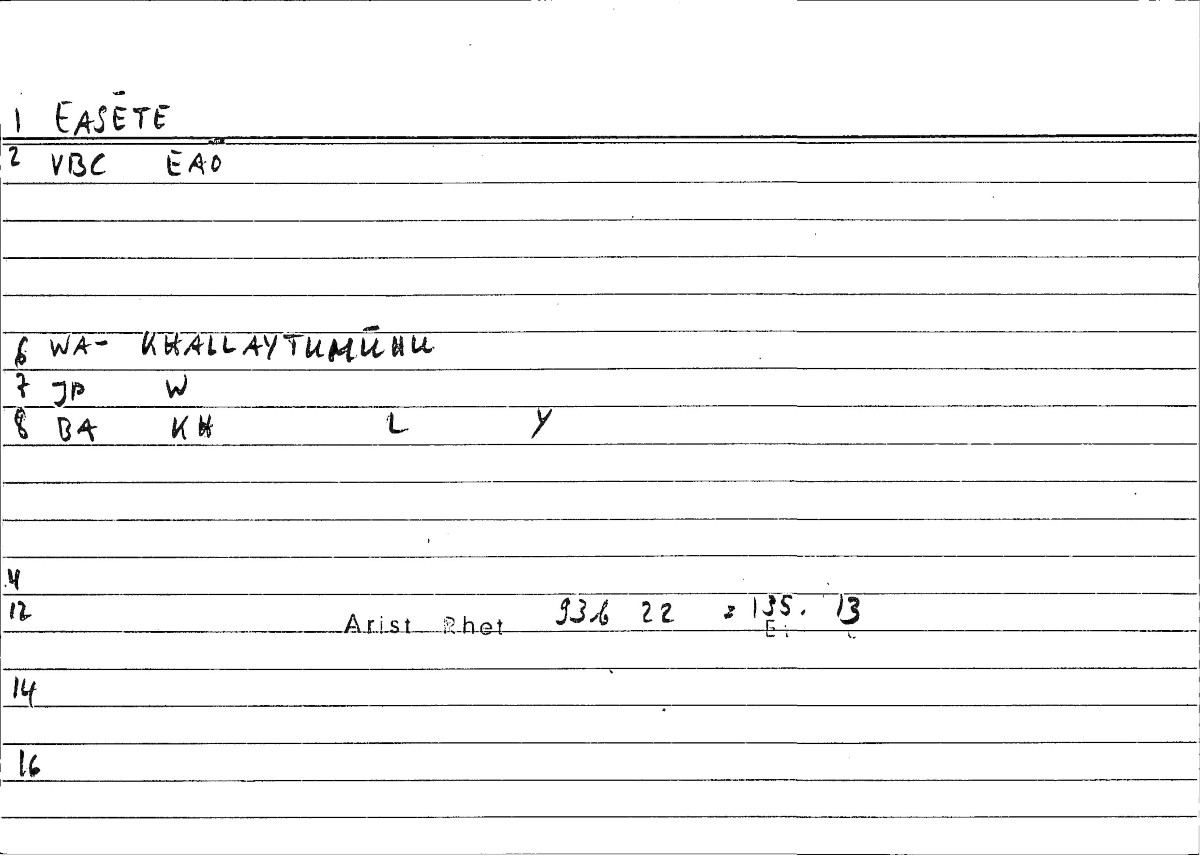 1 EASĒTE
2 VBC EAŌ
6 WA- KHALLAYTUMŪHU
7 JP W
8 BA KH L Y
4
12 Arist Rhet 93b 22 = 135. 13
14
16